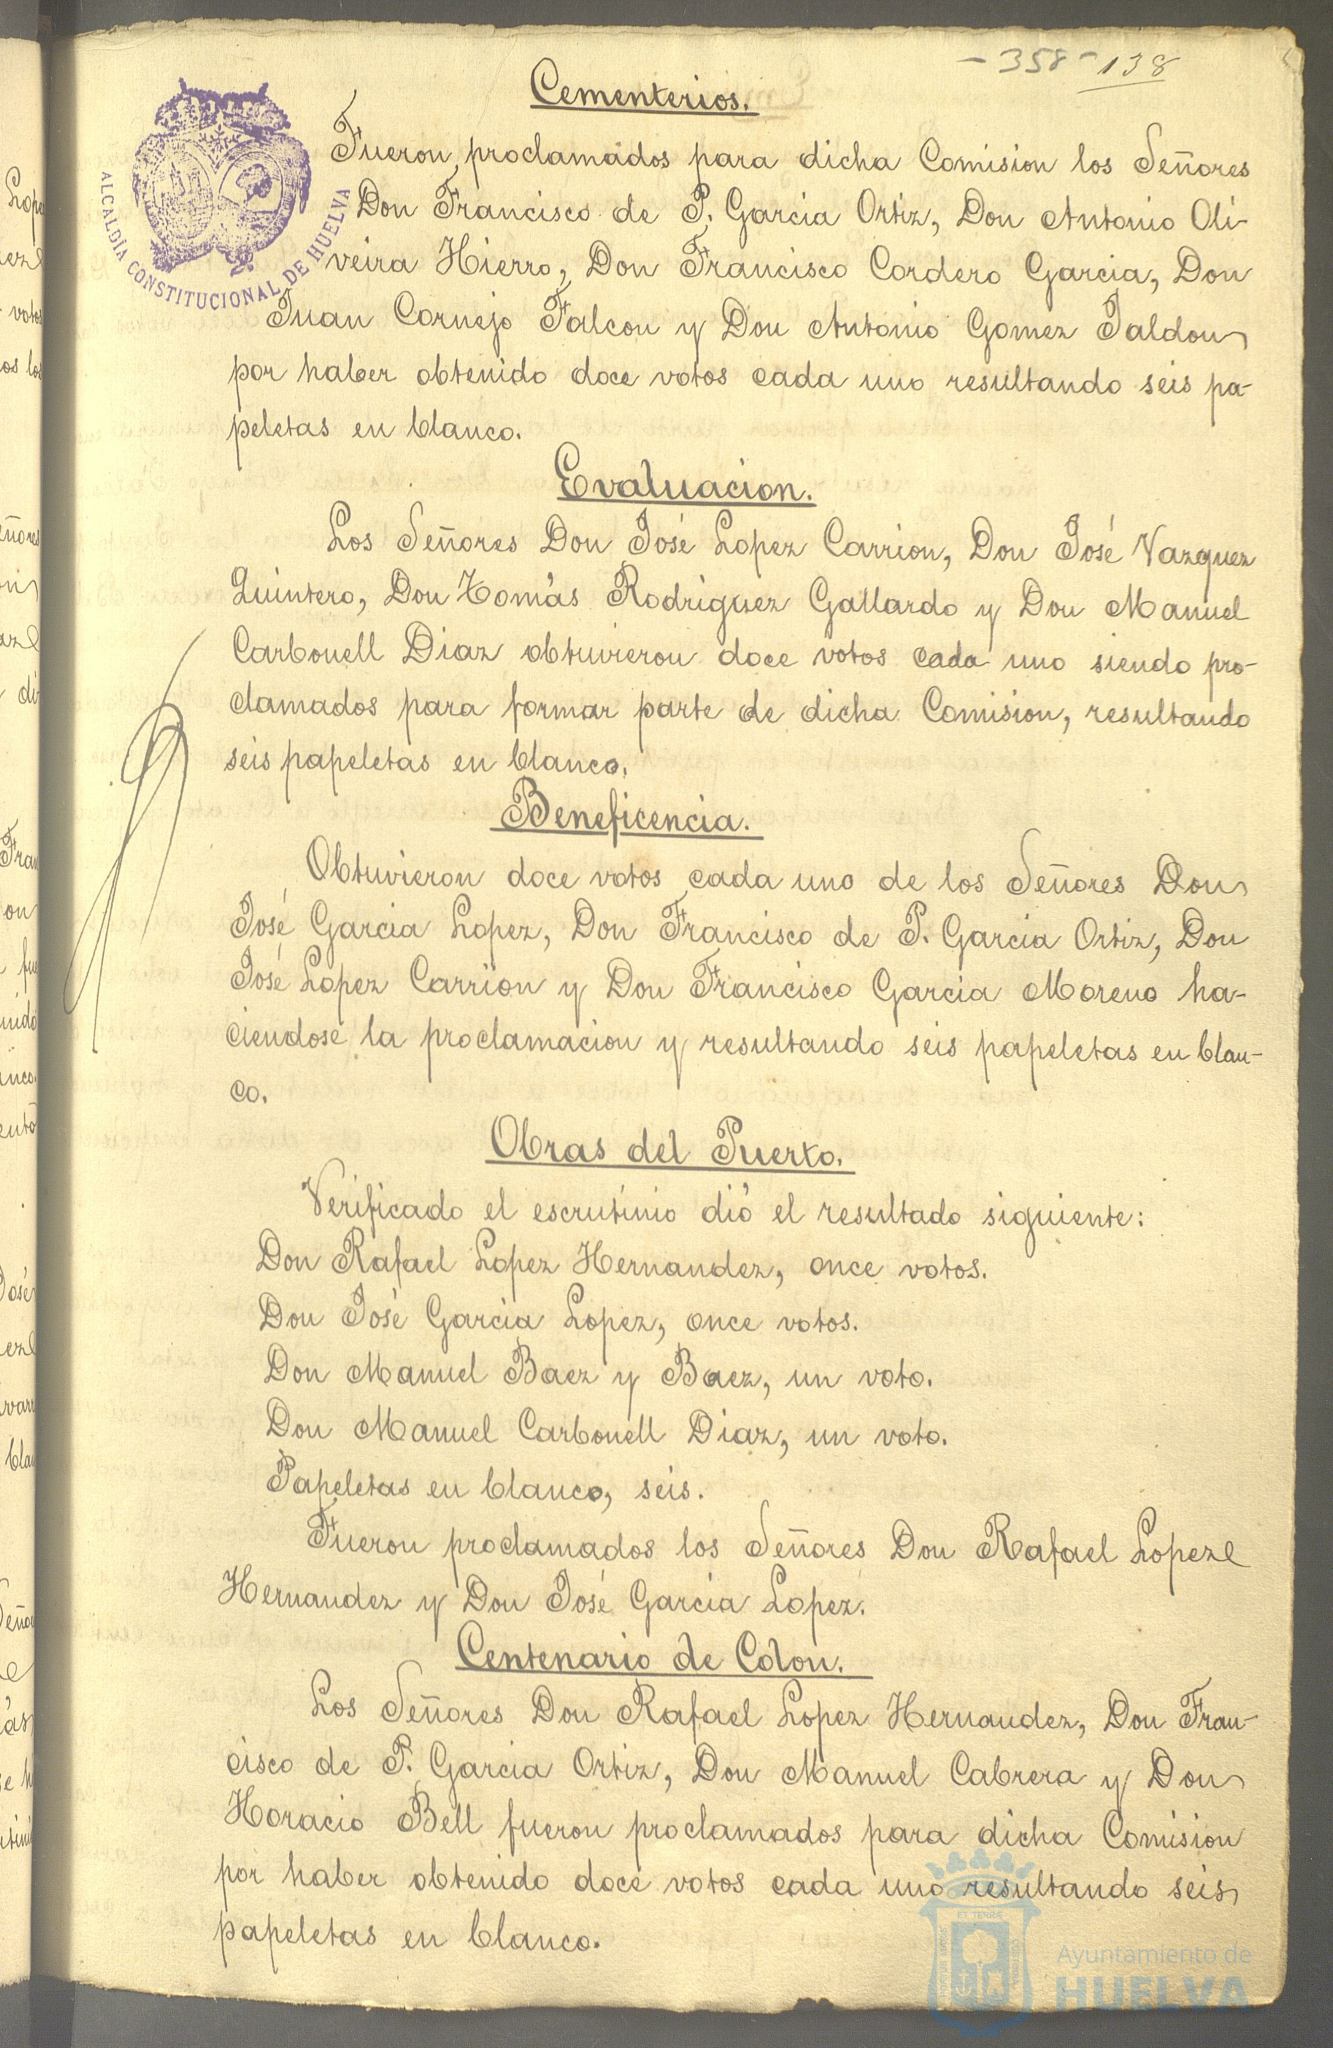 -358- 138
Cementerios.
ALCALDÍA CONSTITUCIONAL DE HUELVA
Fueron, proclamados para dicha Comision los Señores
Don Francisco de P. Garcia Ortiz, Don Antonio Oli-
veira Hierro, Don Francisco Cordero Garcia, Don
Juan Cornejo Falcon y Don Antonio Gomez Jaldon
por haber obtenido doce votos cada uno resultando seis pa-
peletas en blanco.
Evaluacion.
Los Señores Don José Lopez Carrion, Don José Vazquez
Quintero, Don Tomás Rodriguez Gallardo y Don Manuel
Carbonell Diaz obtuvieron doce votos cada uno siendo pro-
clamados para formar parte de dicha Comision, resultando
seis papeletas en blanco.
Beneficencia.
Obtuvieron doce votos cada uno de los Señores Don
José Garcia Lopez, Don Francisco de P. Garcia Ortiz, Don
José Lopez Carrion y Don Francisco Garcia Moreno ha-
ciendose la proclamacion y resultando seis papeletas en blan-
co.
Obras del Puerto.
Verificado el escrutinio dió el resultado siguiente:
Don Rafael Lopez Hernandez, once votos.
Don José Garcia Lopez, once votos.
Don Manuel Baez y Baez, un voto.
Don Manuel Carbonell Diaz, un voto.
Papeletas en blanco, seis.
Fueron proclamados los Señores Don Rafael Lopez
Hernandez y Don José Garcia Lopez.
Centenario de Colon.
Los Señores Don Rafael Lopez Hernandez, Don Fran-
cisco de P. Garcia Ortiz, Don Manuel Cabrera y Don
Horacio Bell fueron proclamados para dicha Comision
por haber obtenido doce votos cada uno resultando seis
papeletas en blanco.
Ayuntamiento de
HUELVA